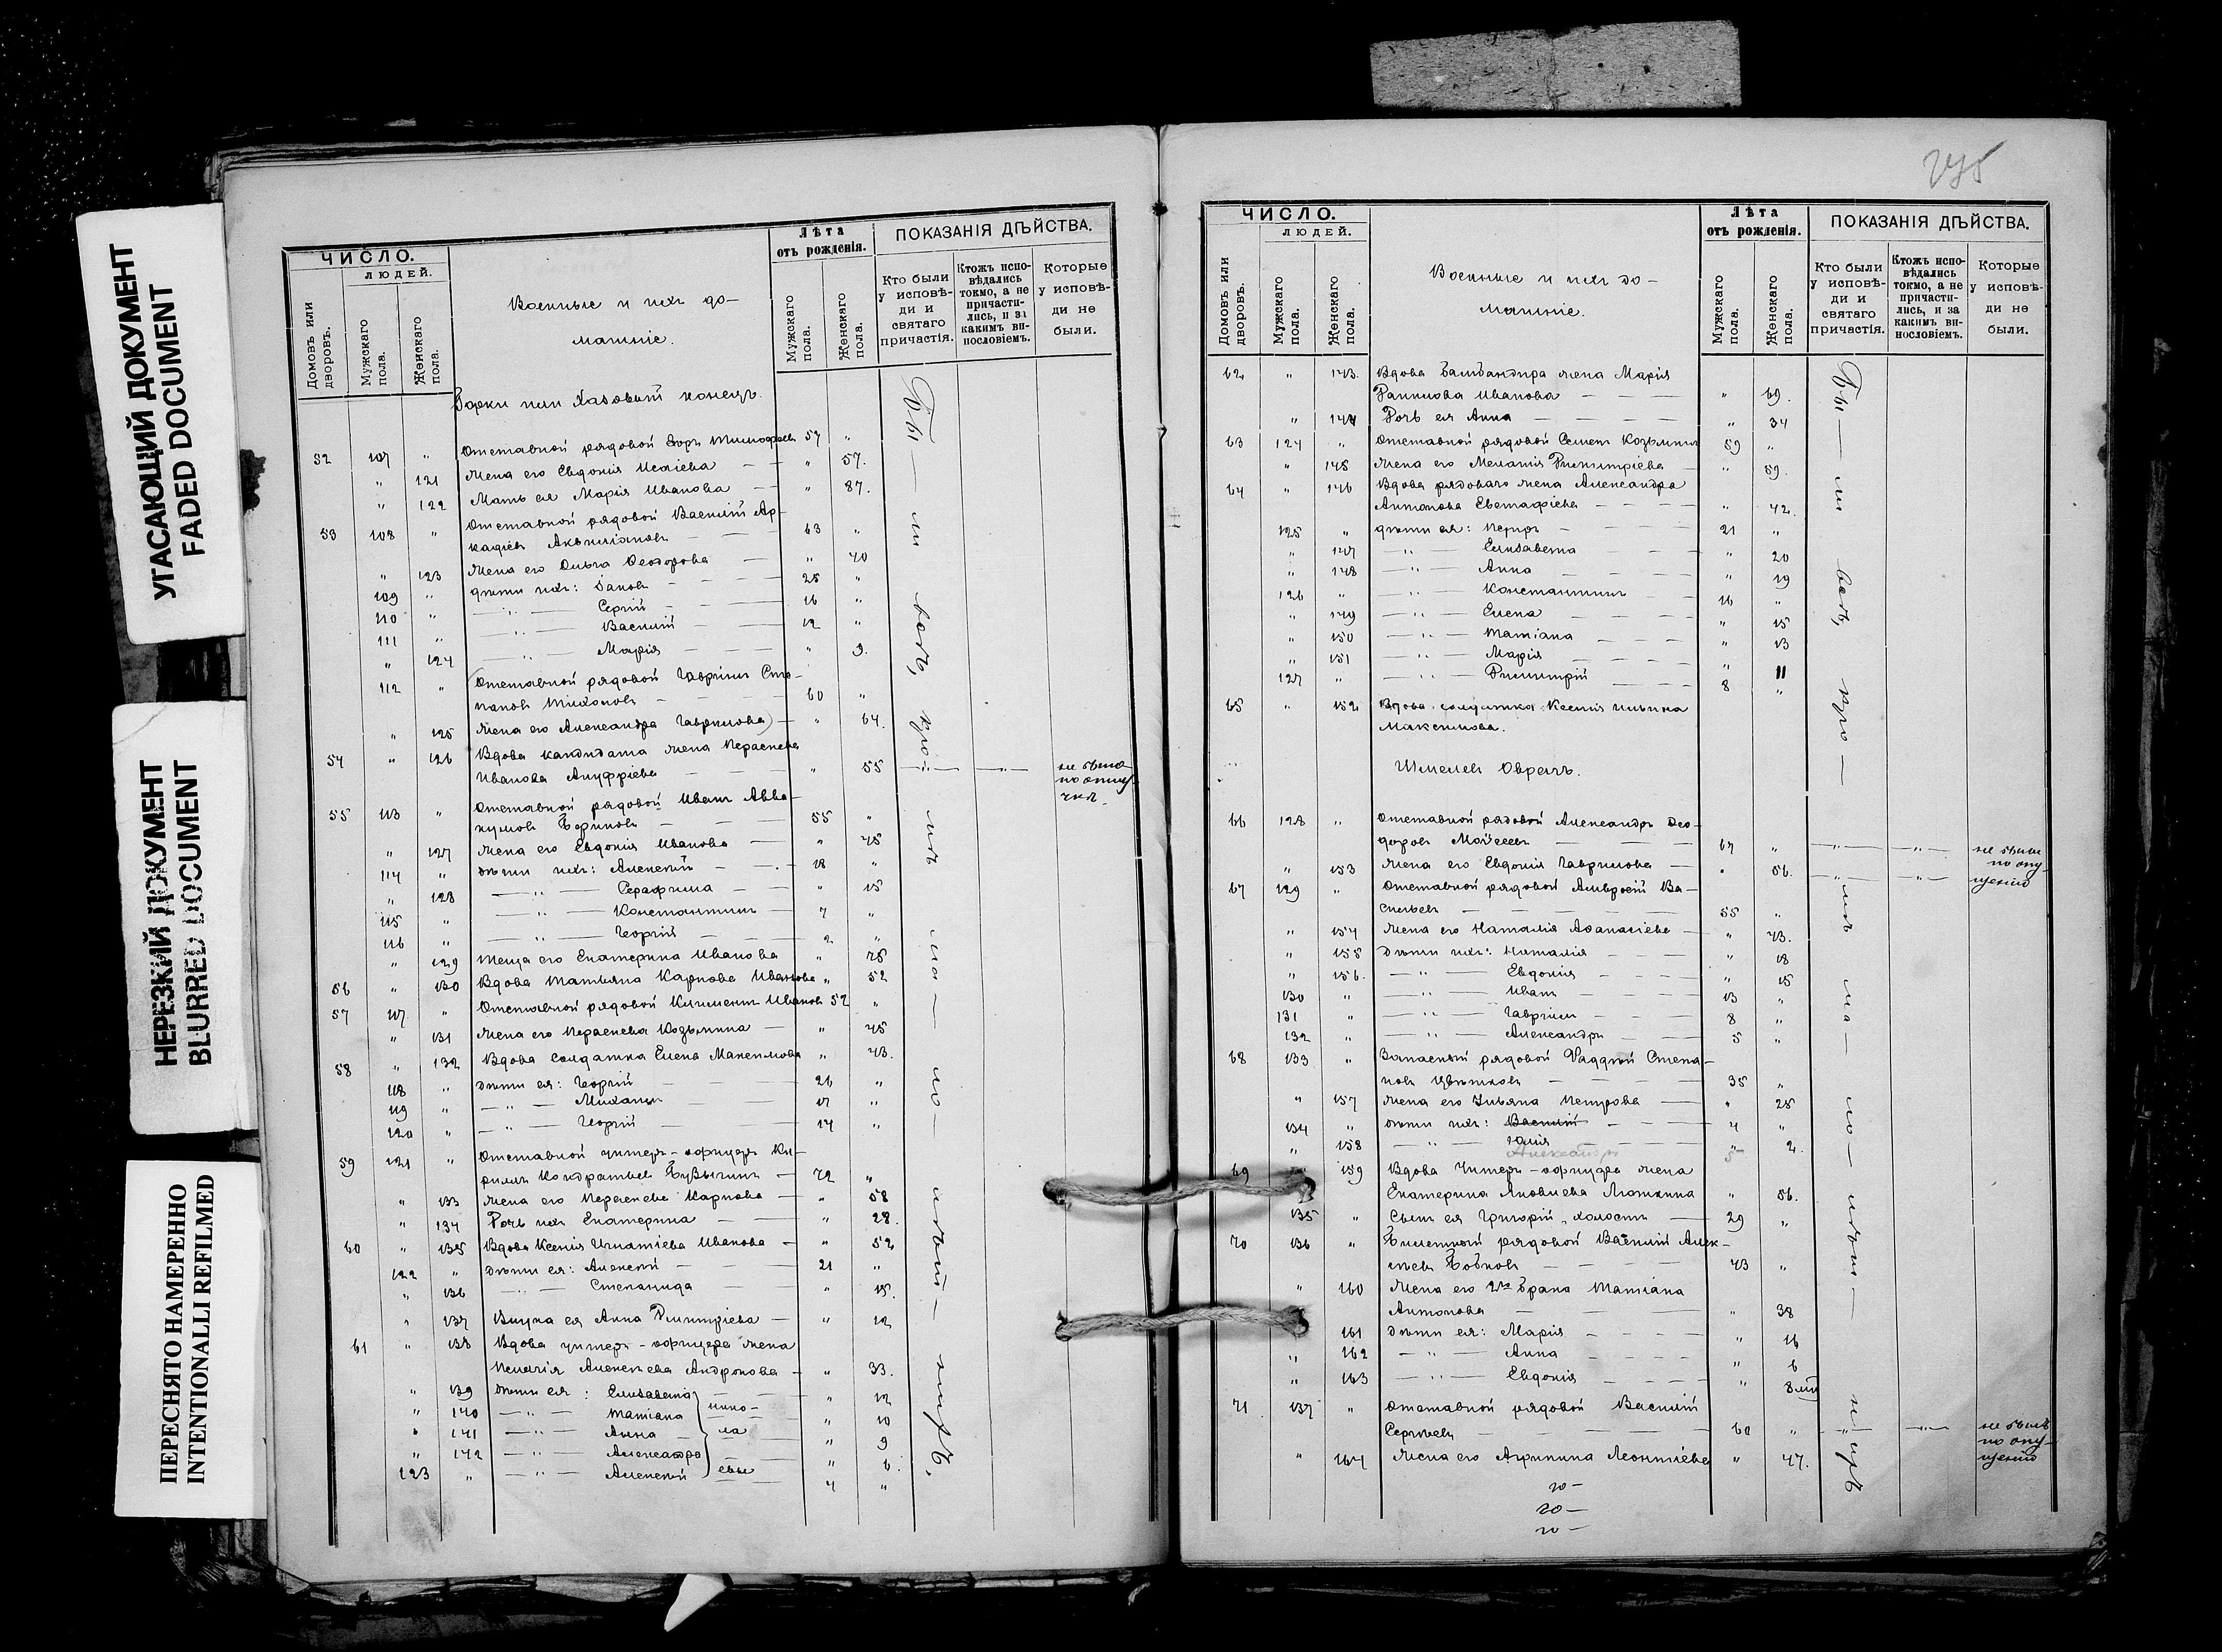 УГАСАЮЩИЙ ДОКУМЕНТ
FADED DOCUMENT
НЕРЕЗКИЙ ДОКУМЕНТ
BLURRED DOCUMENT
ПЕРЕСНЯТО НАМЕРЕННО
INTENTIONALLI REFILMED
ЧИСЛО.
ЛЮДЕЙ.
Домовъ или дворовъ.
Мужскаго пола.
Женскаго пола.
Военные и ихъ до-
машніе.
Лѣта
отъ рожденія.
Мужскаго пола.
Женскаго пола.
ПОКАЗАНІЯ ДѢЙСТВА.
Кто были у исповѣ-ди и святаго причастія.
Ктожъ испо-вѣдались токмо, а не причасти-лись, и за какимъ ви-нословіемъ.
Которые у исповѣ-ди не были.
конецъ.
52 107 " Отставной рядовой Тимофеевъ 57 "
" 121 Жена его Евдокія Исаіева — " 57.
" 122 Мать ея Марія Иванова — " 87.
Отставной рядовой Василій Ар-
53 108 " кадіевъ — 63 "
" 123 Жена его Ольга Ѳеодорова — " 40
109 " дѣти ихъ: Іаковъ — 25 "
110 " — " — Сергій — 16 "
111 " — " — Василій — 12 "
" 124 — " — Марія — " 9.
112 " (Отставной рядовой Гавріилъ Сте-
пановъ Тихоновъ — 60 "
" 125 Жена его Александра Гаврилова) — " 64.
54 " 126 Вдова кандидата жена Параскева
Иванова Ануфріева — " 55 — " — — " — не была
по опущ.
55 113 " Отставной рядовой Иванъ Авва-
кумовъ — 55 "
" 127 Жена его Евдокія Иванова — " 45
114 " дѣти ихъ: Алексѣй — 18 "
" 128 — " — Серафима — " 15
115 " — " — Константинъ — 7 "
116 " — " — Георгій — 2 "
" 129 Теща его Екатерина Иванова " 75
56 " 130 Вдова Татьяна Карпова Иванова " 52
57 117 " Отставной рядовой Климентъ Ивановъ 52 "
" 131 Жена его Параскева Козьмина — " 45
58 " 132 Вдова солдатка Елена Максимова " 43.
118 " дѣти ея: Георгій — 26 "
119 " — " — Михаилъ — 17 "
120 " — " — Георгій — 14 "
59 121 " Отставной унтеръ-офицеръ Ки-
риллъ Кондратьевъ — 72 "
" 133 Жена его Параскева Карпова — " 58
" 134 Дочь ихъ Екатерина — " 28.
60 " 135 Вдова Ксенія Игнатіева Иванова — " 52
122 " дѣти ея: Алексѣй — 21 "
" 136 — " — Степанида — " 15.
" 137 Внука ея Анна Димитріева — " 12
61 " 138 Вдова унтеръ-офицера жена
Пелагія Алексѣева Андронова — " 33.
" 139 дѣти ея: Елизавета — " 12
" 140 — " — Татіана — " 10
" 141 — " — Анна — " 9
" 142 — " — Александра — " 6.
123 " — " — Алексѣй — 4 "
ЧИСЛО.
ЛЮДЕЙ.
Домовъ или дворовъ.
Мужскаго пола.
Женскаго пола.
Военные и ихъ до-
машніе.
Лѣта
отъ рожденія.
Мужскаго пола.
Женскаго пола.
ПОКАЗАНІЯ ДѢЙСТВА.
Кто были у исповѣ-ди и святаго причастія.
Ктожъ испо-вѣдались токмо, а не причасти-лись, и за какимъ ви-нословіемъ.
Которые у исповѣ-ди не были.
62 " 143. Вдова жена Марія
Данилова Иванова — " 69.
" 144 Дочь ея Анна — " 34
63 124 " Отставной рядовой Семенъ Козьминъ 59 "
" 145 Жена его Меланія Димитріева — " 59.
64 " 146 Вдова рядоваго жена Александра
Антонова Евстафіева — " 42.
125 " дѣти ея: Петръ — 21 "
" 147 — " — Елизавета — " 20
" 148 — " — Анна — " 19
126 " — " — Константинъ — 16 "
" 149 — " — Елена — " 15
" 150 — " — Татіана — " 13
" 151 — " — Марія — " 11
127 " — " — Димитрій — 8 "
65 " 152 Вдова солдатка Ксенія Ильина
Максимова.
Шмелевъ Оврагъ.
66 128 " Отставной рядовой Александръ Ѳео-
доровъ Моѵсеевъ — 67 " — " — — " — не были
" 153 Жена его Евдокія Гаврилова — " 56. — " — — " — по опу-
щенію
67 129 " Отставной рядовой Амвросій Ва-
сильевъ — 55 "
" 154 Жена его Наталія Аѳанасіева — " 43.
" 155 Дѣти ихъ: Наталія — " 18
" 156. — " — Евдокія — " 15
130 " — " — Иванъ — 13 "
131 " — " — Гавріилъ — 8 "
132 " — " — Александръ — 5 "
68 133 " Запасный рядовой Ѳаддей Степа-
новъ Цвѣтковъ — 35 "
" 157 Жена его Ульяна Петрова — " 28
134 " дѣти ихъ: Василій — 4 "
" 158 — " — Юлія — " 2.
Александръ 5
69 " 159 Вдова Унтеръ-офицера жена
Екатерина Яковлева — " 56.
135 " Сынъ ея Григорій, холостъ — 29 "
70 136 " Билетный рядовой Василій Алек-
сѣевъ Бобковъ — 43 "
" 160 Жена его 2го брака Татіана
Антонова — " 38
161 дѣти ея: Марія — " 16
" 162 — " — Анна — " 6
" 163 — " — Евдокія — " 8 м
71 137 " Отставной рядовой Василій
Сергѣевъ — 60 " — " — — " — не былъ
по опу-
" 164 Жена его Агрипина Леонтіева " 47. щенію